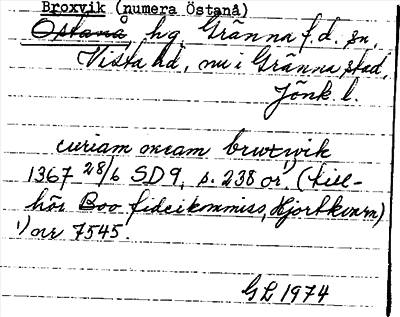 Broxvik (numera Östanå)
Östanå, hg Gränna f.d. sn,
Vista hd, nu i Gränna stad,
Jönk. l.
curiam meam brwtwik
1367 28/6 SD 9, s. 238 or. 1) (till-
hör Boo fideikommiss, Hjortkvarn)
1) nr 7545.
GL 1974